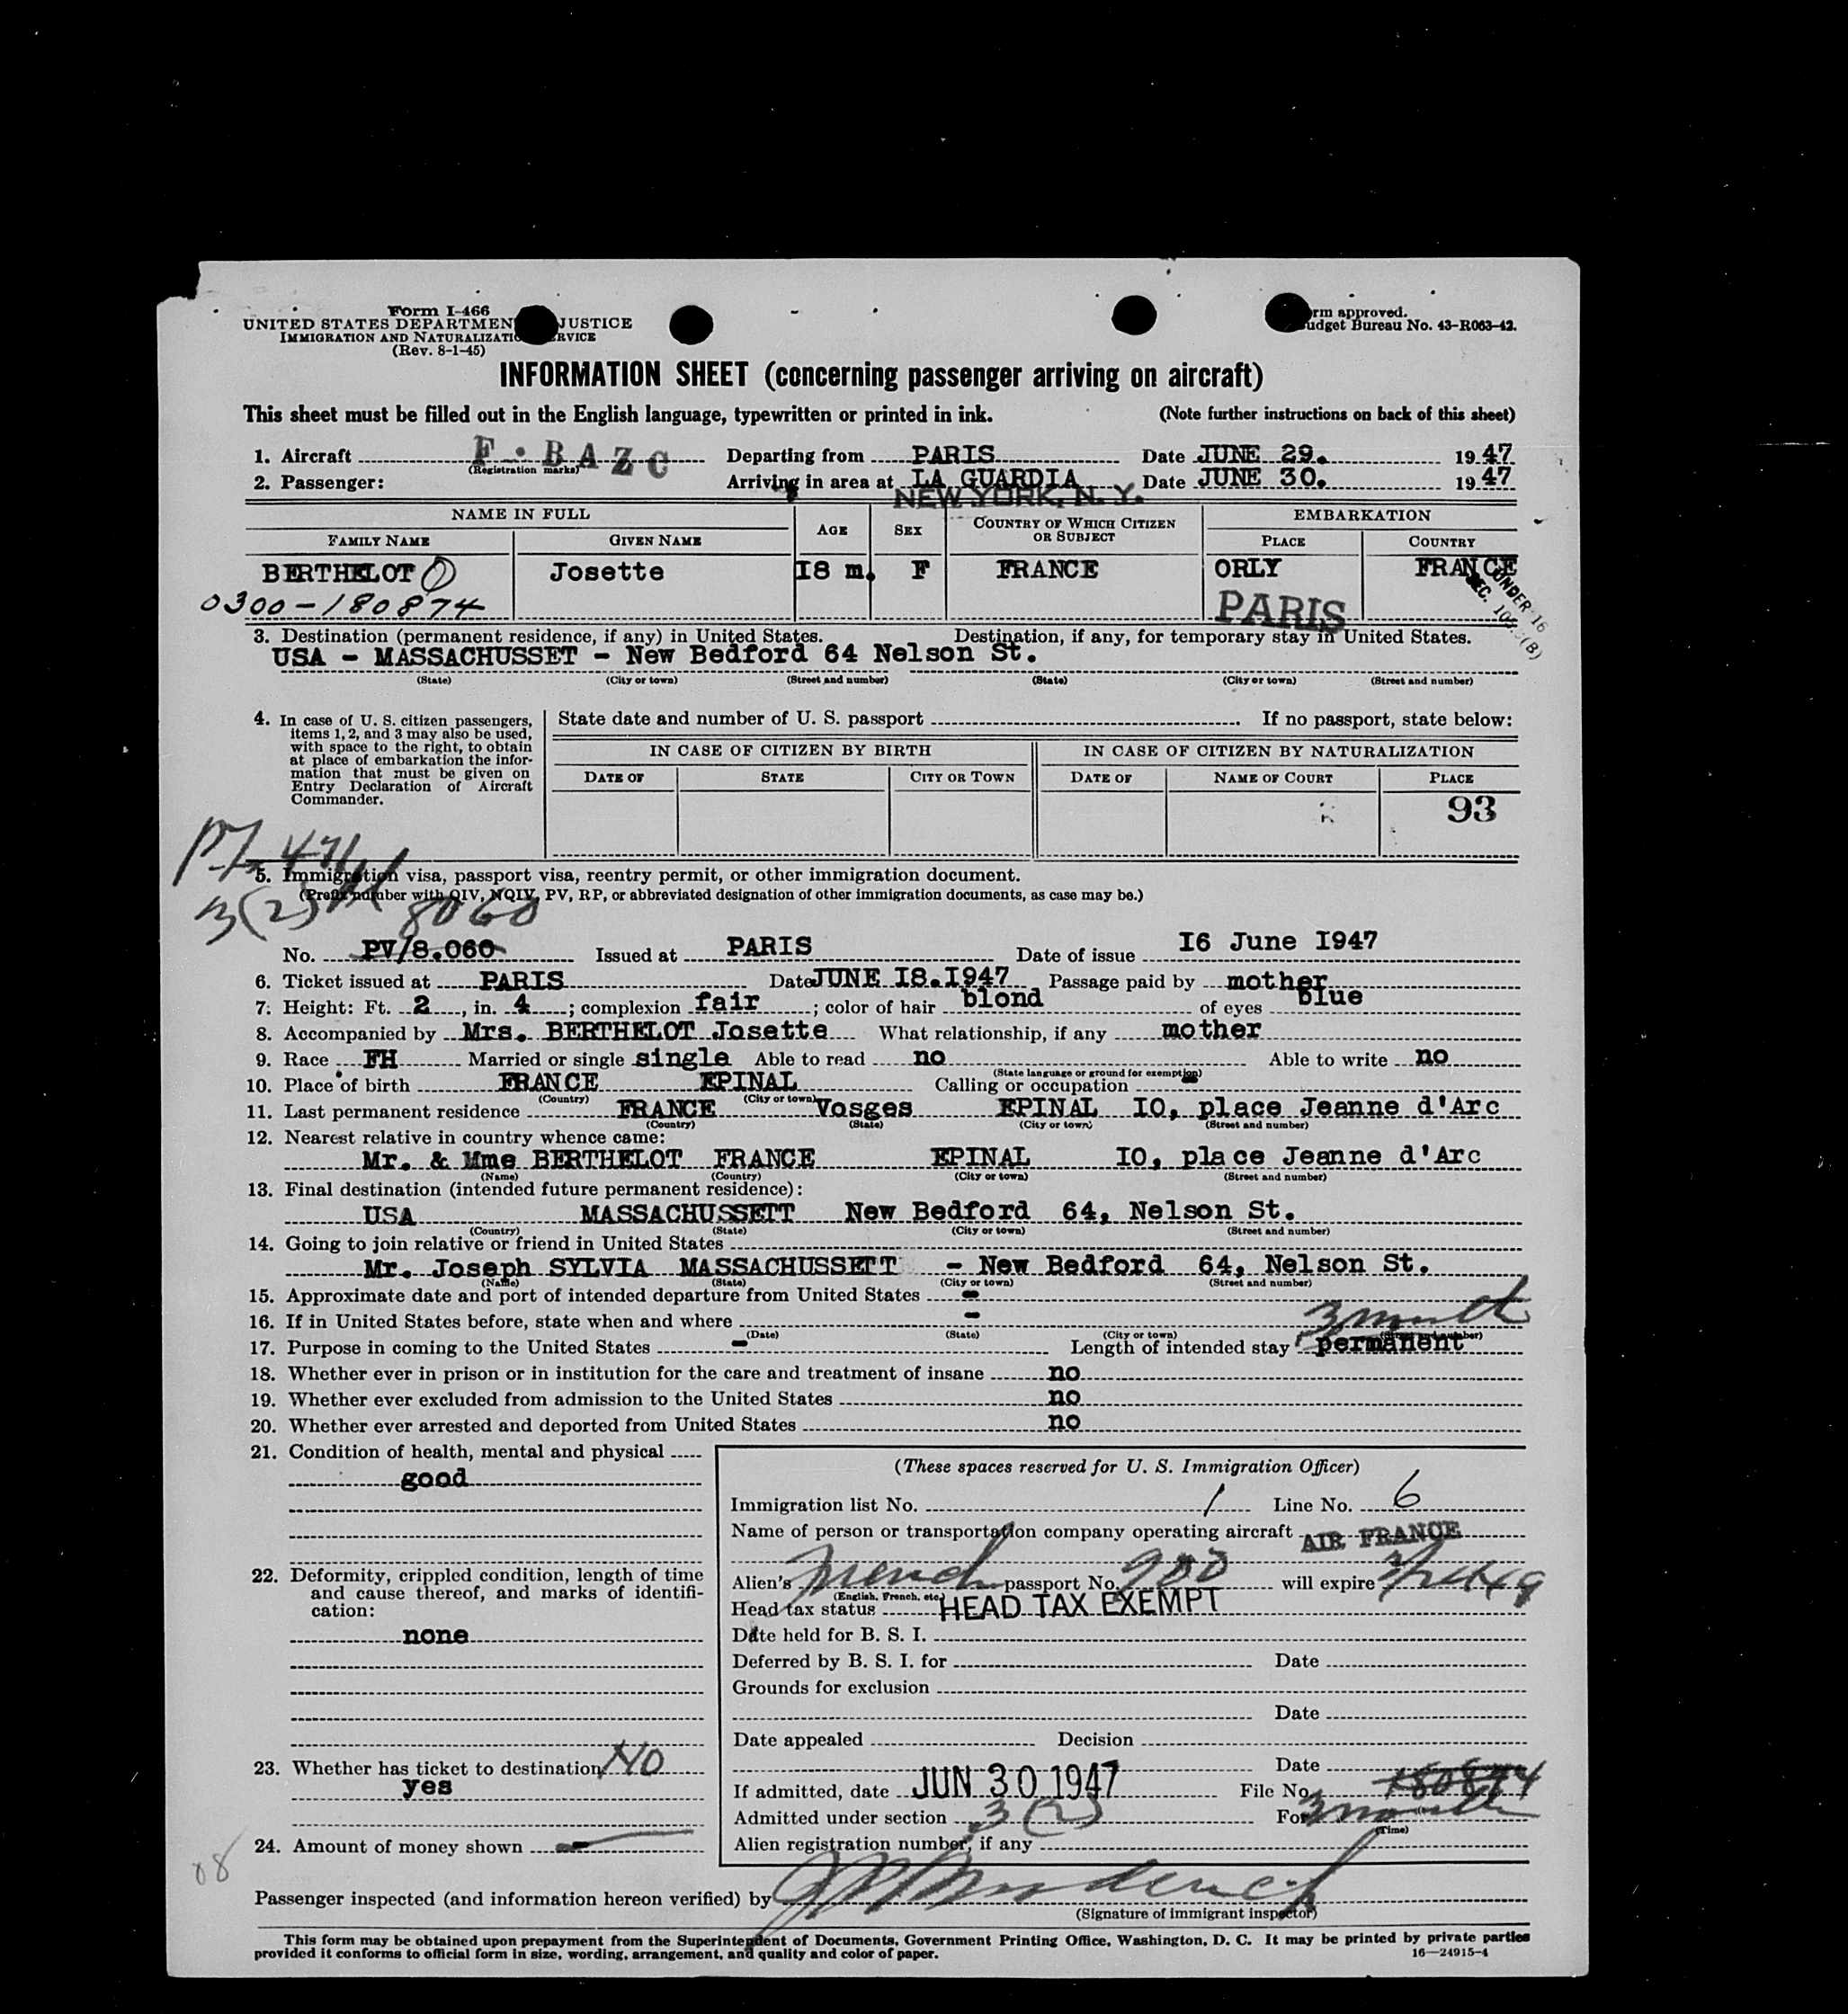 Form I-466
UNITED STATES DEPARTMEN JUSTICE
IMMIGRATION AND NATURALIZATIO RVICE
(Rev. 8-1-45)
rm approved.
udget Bureau No. 43-R063-42.
INFORMATION SHEET (concerning passenger arriving on aircraft)
This sheet must be filled out in the English language, typewritten or printed in ink. (Note further instructions on back of this sheet)
1. Aircraft F-BAZC Departing from PARIS Date JUNE 29. 1947
(Registration marks)
2. Passenger: Arriving in area at LA GUARDIA Date JUNE 30. 1947
NEW YORK, N. Y.
NAME IN FULL AGE SEX COUNTRY OF WHICH CITIZEN OR SUBJECT EMBARKATION
FAMILY NAME GIVEN NAME PLACE COUNTRY
BERTHELOT Josette I8 m. F FRANCE ORLY FRANCE
0300-180874 PARIS UNDER 16
3. Destination (permanent residence, if any) in United States. Destination, if any, for temporary stay in United States.
USA - MASSACHUSSET - New Bedford 64 Nelson St.
(State) (City or town) (Street and number) (State) (City or town) (Street and number)
4. In case of U. S. citizen passengers, items 1, 2, and 3 may also be used, with space to the right, to obtain at place of embarkation the information that must be given on Entry Declaration of Aircraft Commander.
State date and number of U. S. passport If no passport, state below:
IN CASE OF CITIZEN BY BIRTH IN CASE OF CITIZEN BY NATURALIZATION
DATE OF STATE CITY OR TOWN DATE OF NAME OF COURT PLACE
93
5. Immigration visa, passport visa, reentry permit, or other immigration document.
(Prefix number with QIV, NQIV, PV, RP, or abbreviated designation of other immigration documents, as case may be.)
3(2) 8060
No. PV/8.060 Issued at PARIS Date of issue I6 June I947
6. Ticket issued at PARIS Date JUNE I8.I947 Passage paid by mother
7. Height: Ft. 2, in. 4; complexion fair; color of hair blond of eyes blue
8. Accompanied by Mrs. BERTHELOT Josette What relationship, if any mother
9. Race FH Married or single single Able to read no Able to write no
(State language or ground for exemption)
10. Place of birth FRANCE EPINAL Calling or occupation -
(Country) (City or town)
11. Last permanent residence FRANCE Vosges EPINAL IO, place Jeanne d'Arc
(Country) (State) (City or town) (Street and number)
12. Nearest relative in country whence came:
Mr. & Mme BERTHELOT FRANCE EPINAL IO, place Jeanne d'Arc
(Name) (Country) (City or town) (Street and number)
13. Final destination (intended future permanent residence):
USA MASSACHUSSETT New Bedford 64, Nelson St.
(Country) (State) (City or town) (Street and number)
14. Going to join relative or friend in United States
Mr. Joseph SYLVIA MASSACHUSSETT - New Bedford 64, Nelson St.
(Name) (State) (City or town) (Street and number)
15. Approximate date and port of intended departure from United States -
16. If in United States before, state when and where - 3 month
(Date) (State) (City or town) (Street and number)
17. Purpose in coming to the United States - Length of intended stay permanent
18. Whether ever in prison or in institution for the care and treatment of insane no
19. Whether ever excluded from admission to the United States no
20. Whether ever arrested and deported from United States no
21. Condition of health, mental and physical
good
22. Deformity, crippled condition, length of time and cause thereof, and marks of identification:
none
23. Whether has ticket to destination NO
yes
24. Amount of money shown -
08
(These spaces reserved for U. S. Immigration Officer)
Immigration list No. 1 Line No. 6
Name of person or transportation company operating aircraft AIR FRANCE
Alien's French passport No. 900 will expire
(English, French, etc.)
Head tax status HEAD TAX EXEMPT
Date held for B. S. I.
Deferred by B. S. I. for Date
Grounds for exclusion
Date
Date appealed Decision
Date
If admitted, date JUN 30 1947 File No. 180874
Admitted under section 3(2) For 3 months
(Time)
Alien registration number, if any
Passenger inspected (and information hereon verified) by
(Signature of immigrant inspector)
This form may be obtained upon prepayment from the Superintendent of Documents, Government Printing Office, Washington, D. C. It may be printed by private parties
provided it conforms to official form in size, wording, arrangement, and quality and color of paper. 16—24915-4